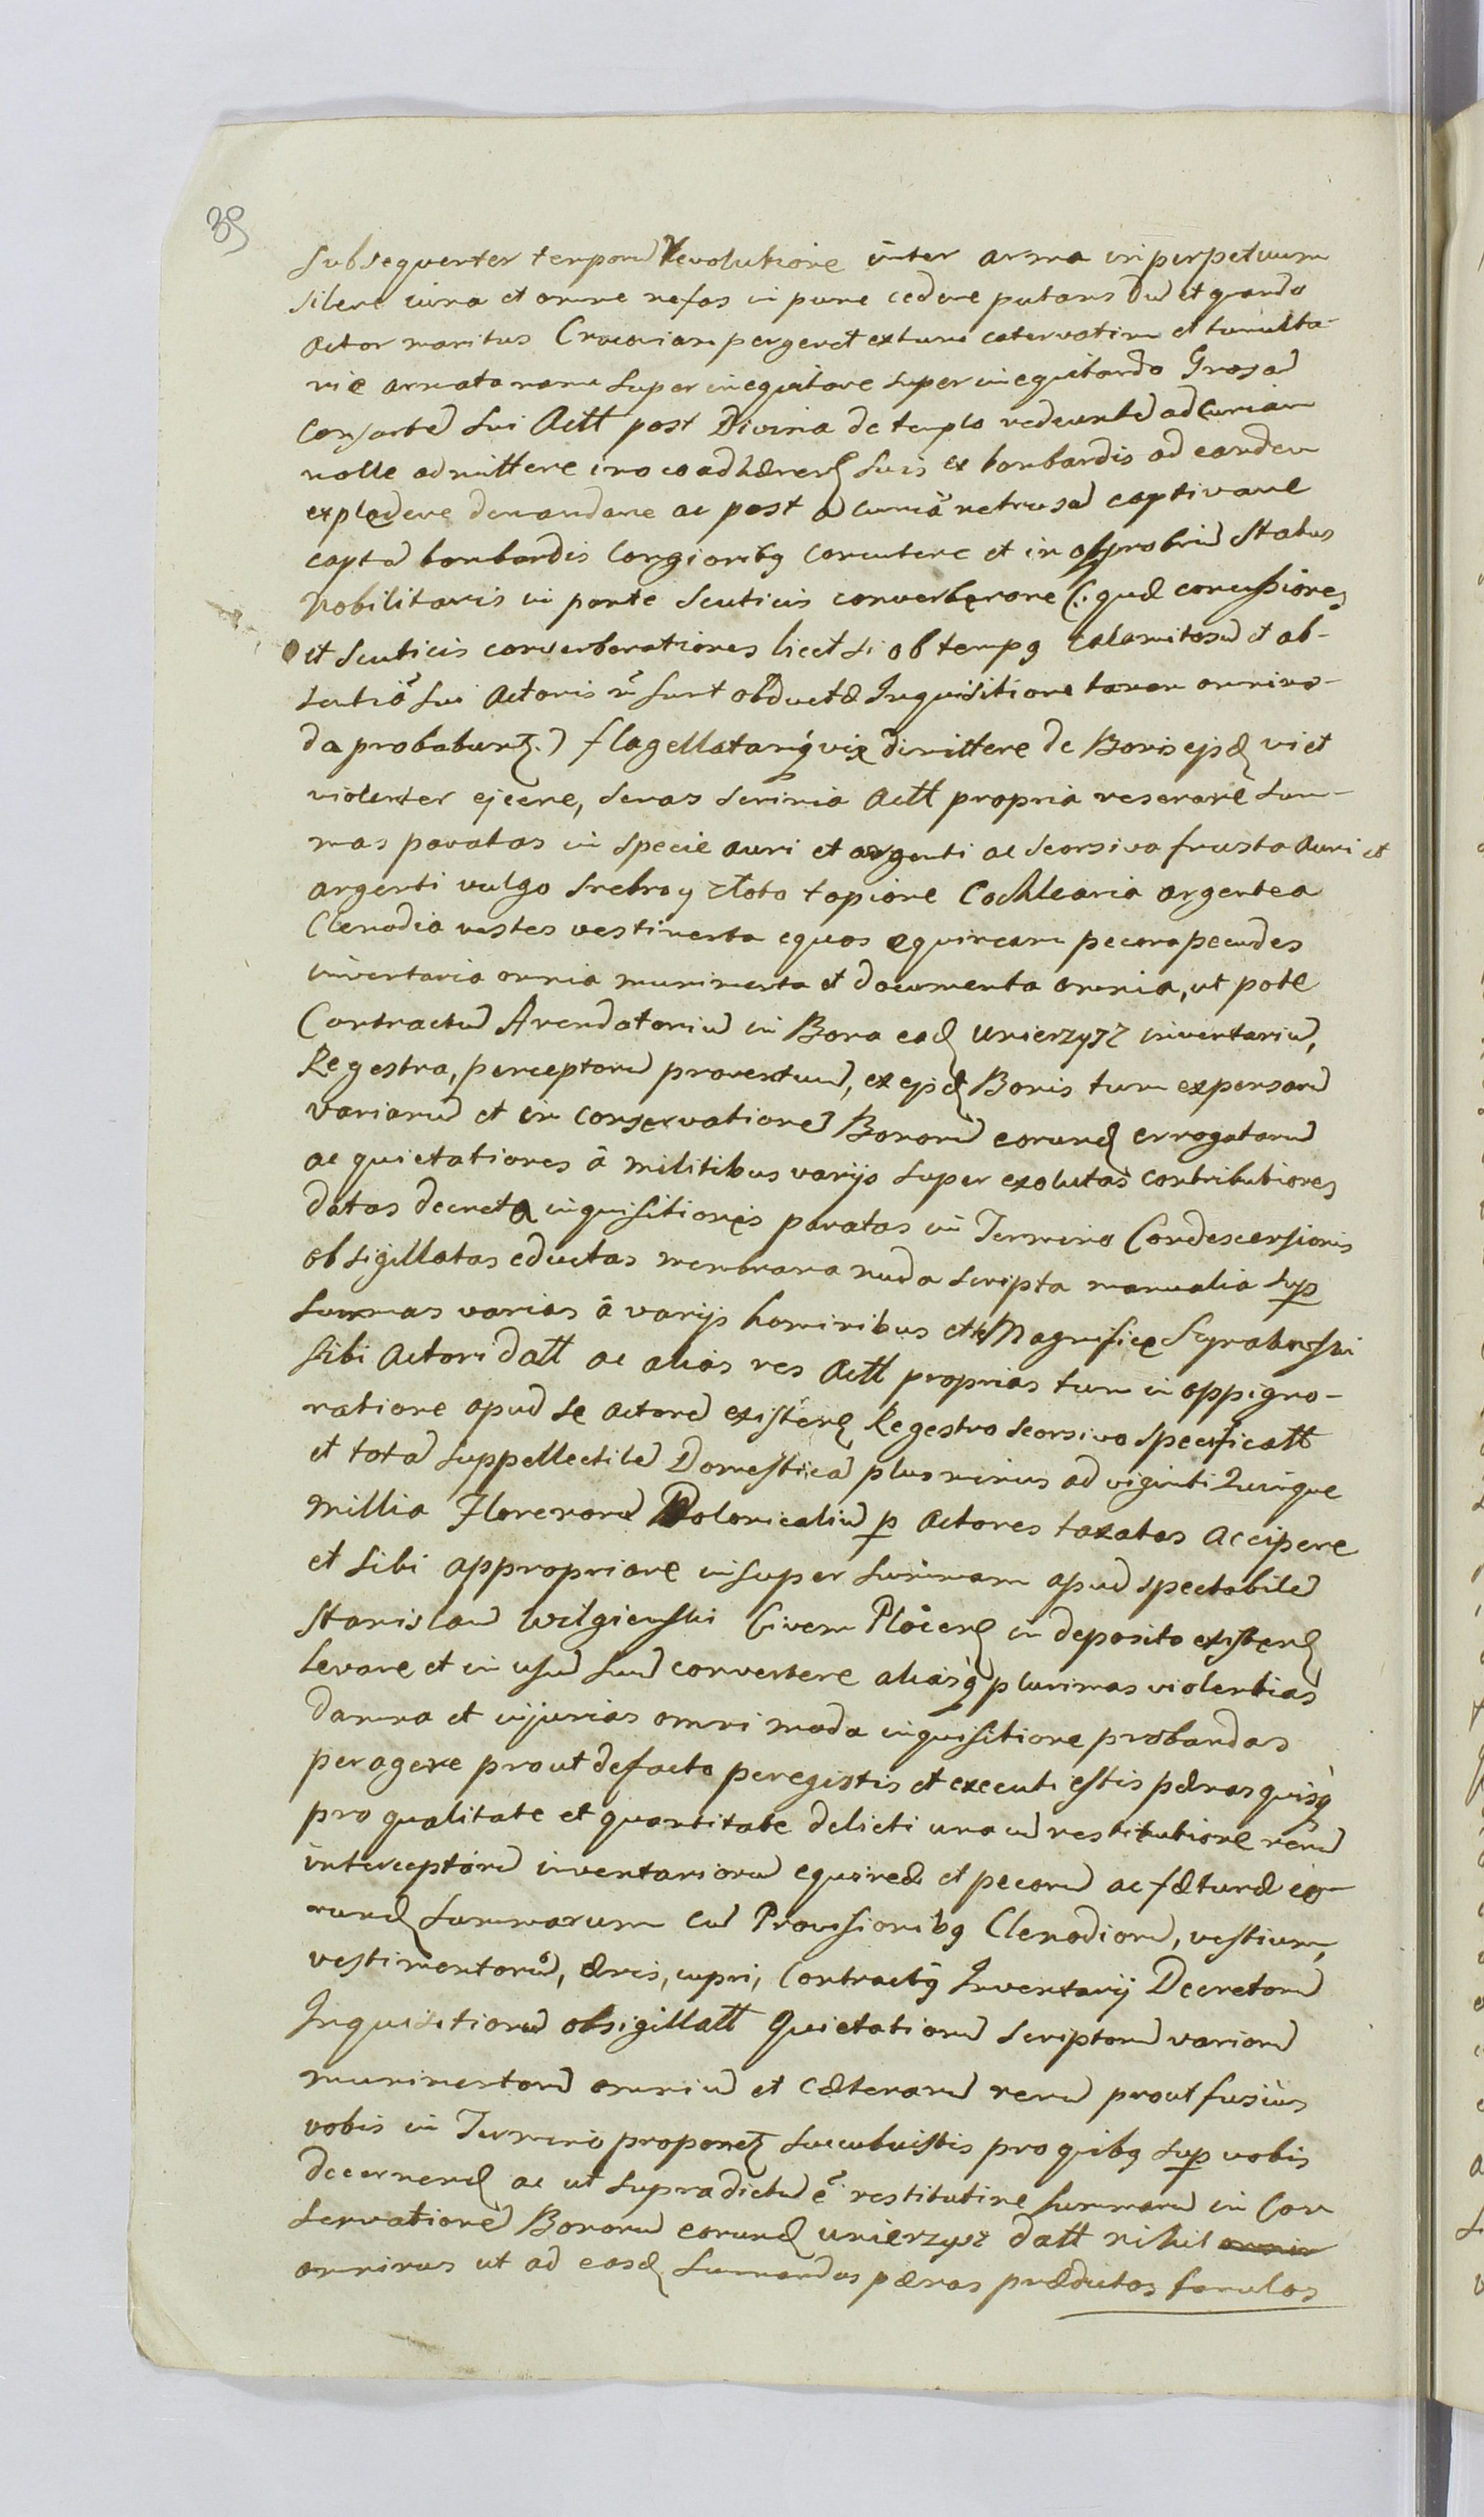 39
subsequenter temporu Revolutione inter arma in perpetuum
silere iura et omne nefas in pune cedere putans Du et quando
Actor maritus Cracoviam pergeret extunc catervatim et tumulta-
rie armata manu super inequitare super inequitando
consorte sui Actt post Divina de templo redeunte ad Curiam
nolle admittere imo coadhæren suis ex bombardis ad eandem
explodere demandare ac post a curiâ retrusa captivare
capta bombardis longioribg concutere et in opprobriu Status
Nobilitaris in ponte scuticis converberare (: quæ concussiones
et scuticis converberationes licet si ob tempg calamitosu et ab-
sentiõ sui Actoris nõ sunt obductæ Inquisitione tamen omnimo-
da probabunt :) flagellatamq vix dimittere de Bonis ejsd vi et
violenter ejcere, seras scrinia Actt propria reserare sum-
mas paratas in specie auri et argenti ac seorsiva frusta Auri et
argenti vulgo srebro y złoto topione Cochlearia argentea
Clenodia vestes vestimenta equos equireum pecora pecudes
inventaria omnia munimenta et documenta omnia, ut pote
Contractu Arendatoriu in Bona ead Unierzysz inventariu,
Regestra, perceptoru proventuu, ex ejsd Bonis tum expensaru
variaru et in conservatione Bonoru eorund errogataru
ac quietationes â militibus varijs super exolutas contributiones
datas decreta inquisitiones paratas in Termino Condescensionis
obsigillatas eductas membrana nuda scripta manualia sup
summas varias â varijs hominibus et Magnifice
sibi Actori datt ac alias res Actt proprias tum in oppigno-
ratione apud se actore existen Regestro seorsivo specificatt
et tota suppellectile Domestica plus minus ad viginti Quinque
millia Florenoru Polonicaliu p Actores taxatas accipere
et sibi appropriare insuper summam apud spectabile
Stanislau Wilgienski Civem Plocen in deposito existen
levare et in usu suu convertere aliasq plurimas violentias
damna et injurias omnimoda inquisitione probandas
peragere prout defacto peregistis et executi estis pænas quisq
pro qualitate et quantitate delicti una cu restitutione reru
interceptaru inventarioru equireæ et pecoru ac fæturæ eo-
rund summarum cu Provisionibg Clenodioru, vestium,
vestimentoru, æris, cupri, Contractg Inventarij Decretoru
Inquisitionu obsigillatt Quietationu scriptoru varioru
munimentoru omniu et cæteraru reru prout fusius
vobis in Termino proponet succubuistis pro quibg sup vobis
decernend ac ut supradictu ẽ restitutine summaru in Con
servatione Bonoru eorund Unierzysz datt nihil omnin
ominus ut ad easd sumandas pænas prædictos famulos